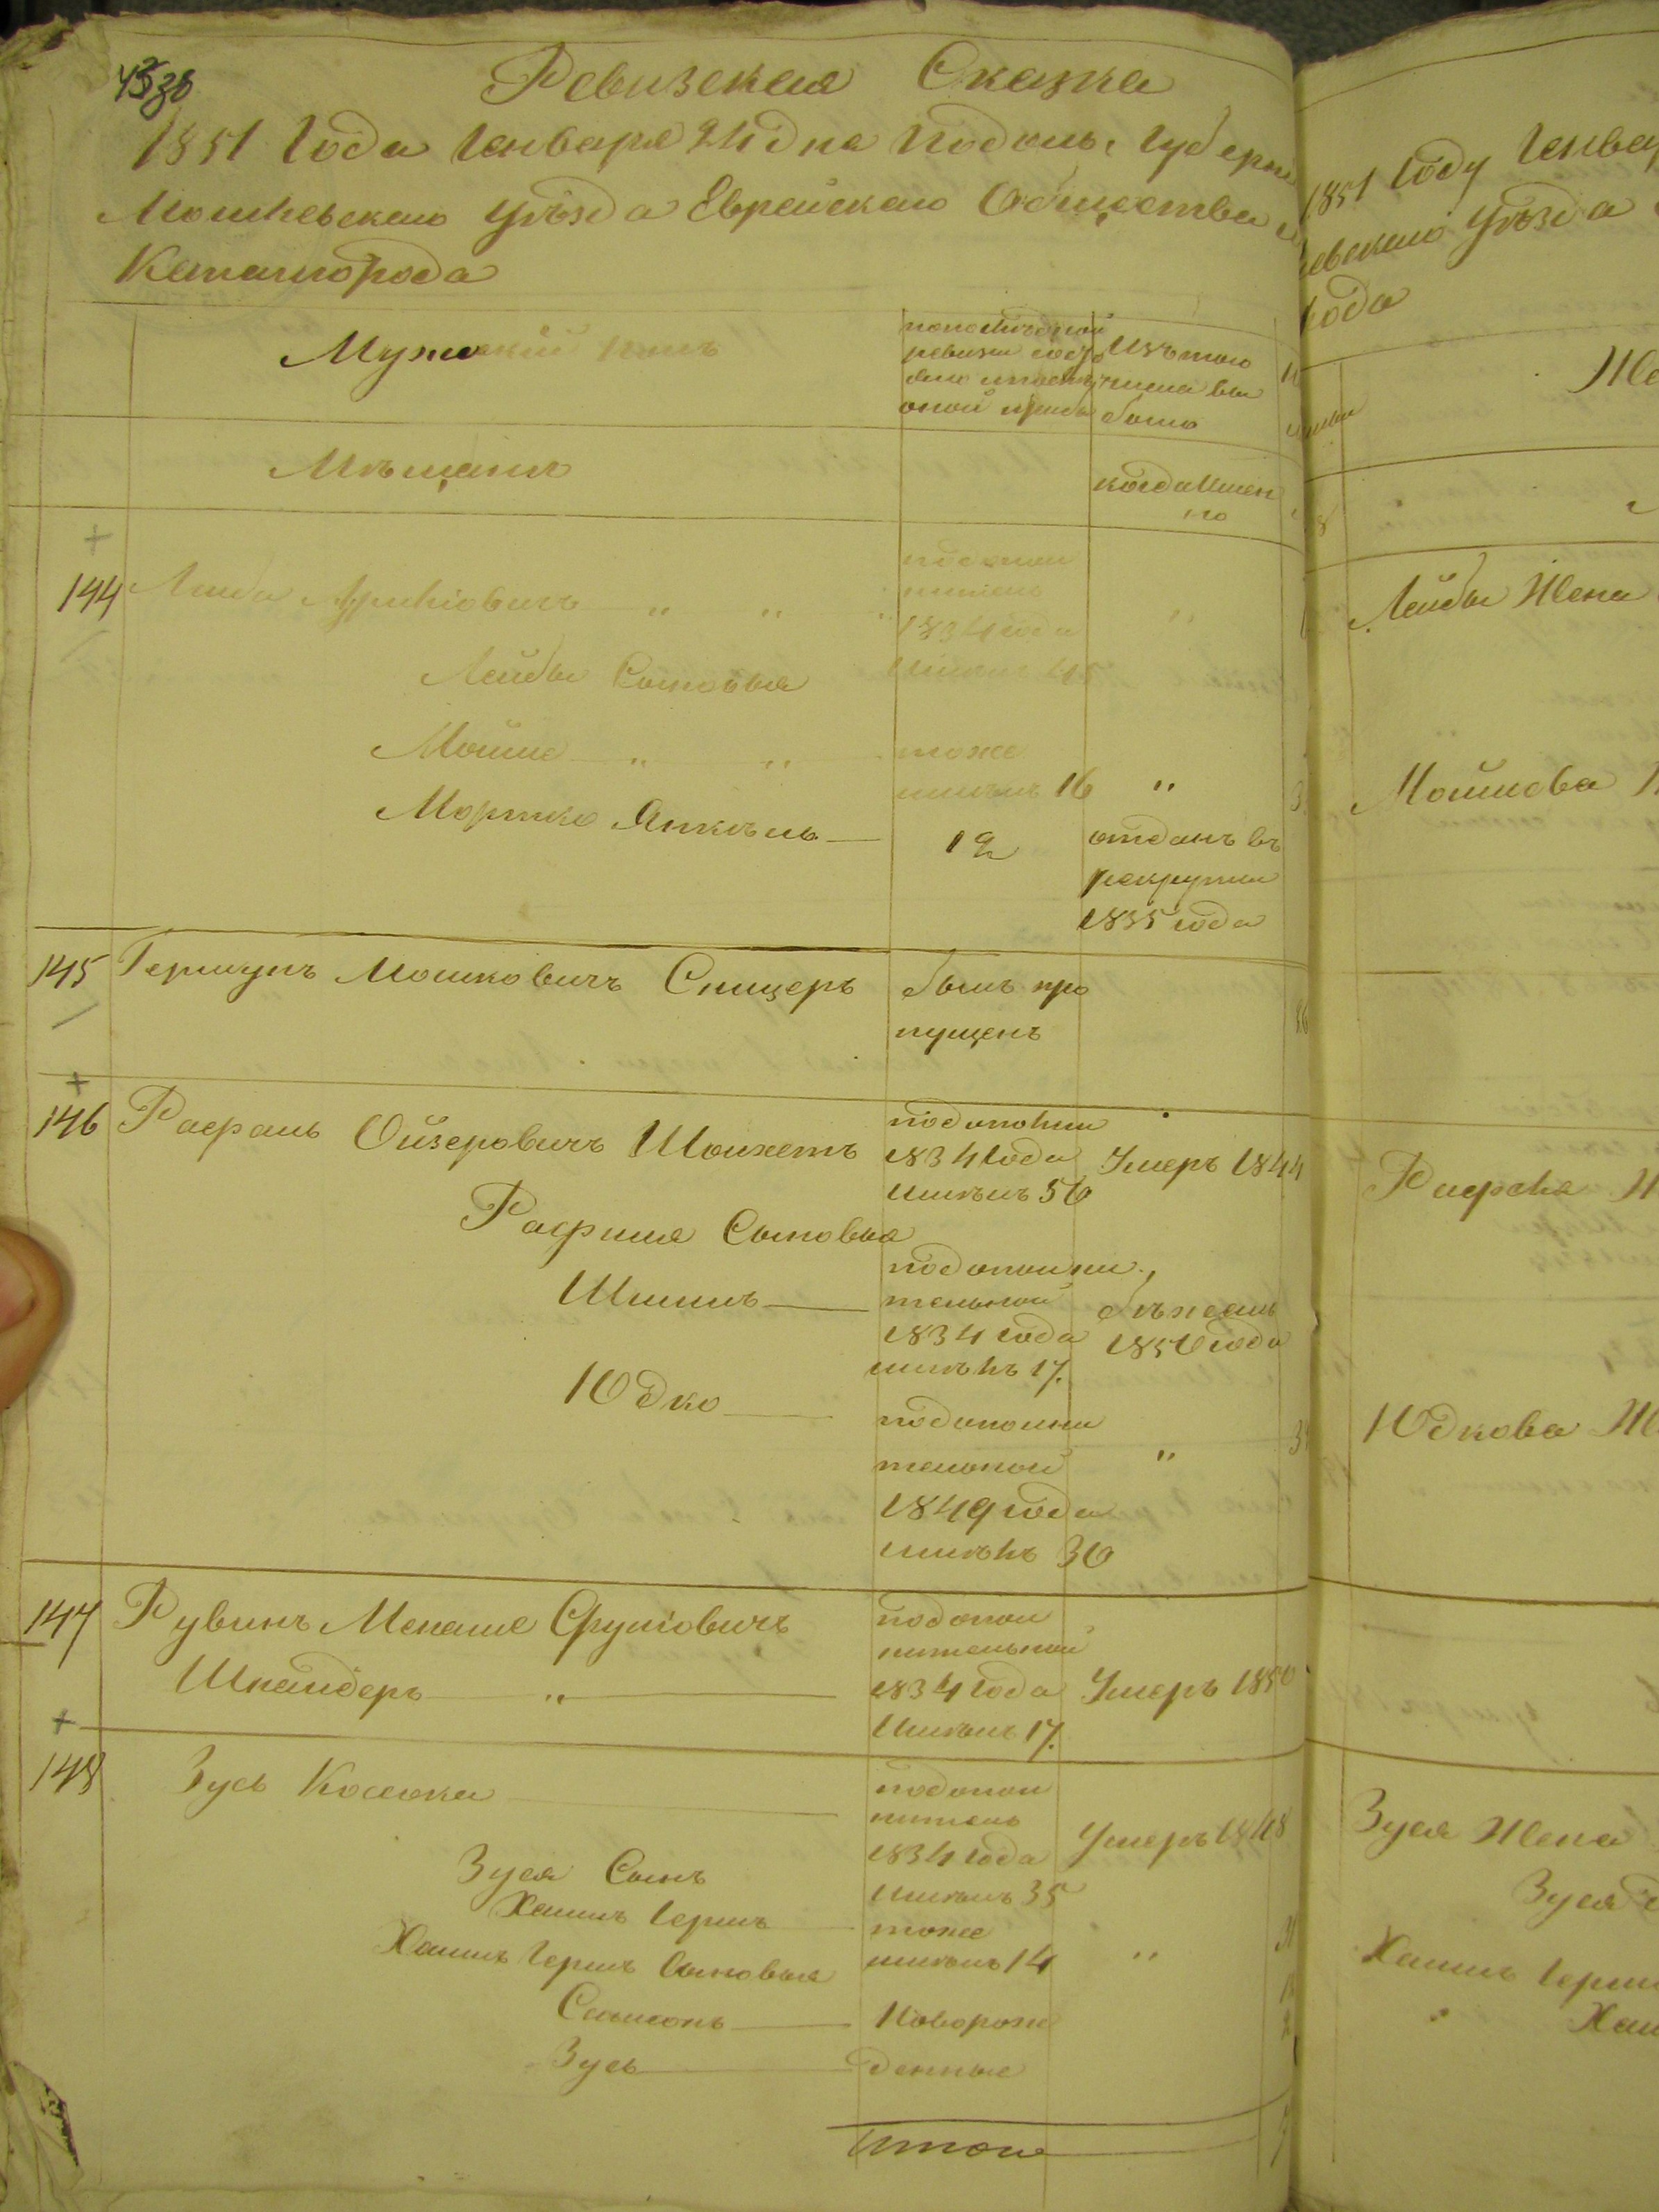 Ревизская Сказка
1851 Года Генваря 24 дня Подоль: Губерн
Могилевскаго Уѣзда Еврейскаго Общества
Катаигорода
Мужский полъ
Изъ того
числа вы
было
Мѣщане
когда Имен
но
144 Лейба
подопол
нитель
1834 года
Имѣлъ 45
Лейбы Сыновья
Мойше " "
тоже
имѣлъ 16 "
Моршко Янкель
12
отданъ въ
рекруты
1835 года
145 Гершунъ Мошковичъ Спицеръ
былъ про
пущенъ
146 Рафаль Ойзеровичъ Шойхетъ
подополни
1834 Года
Имѣлъ 56
Умеръ 1844
Рафаля Сыновья
Шмиль
подополни
тельной
1834 года
имѣлъ 17.
бѣжалъ
1850 года
Юдко
подополни
тельной
1849 года
имѣлъ 30
"
147 Рувинъ Менаше Сруліовичъ
Шнайдеръ "
подопол
нительной
1834 Года
Имѣлъ 17.
Умеръ 1850
148 Зусь
подопол
нитель
1834 Года
Имѣлъ 35
Умеръ 1848
Зуся Сынъ
Хаимъ Гершъ
тоже
имѣлъ 14 "
Хаимъ Герша Сыновья
Самсонъ
Новорож
Зусь
денные
Итого
1851 Году Генвар
левскаго Уѣзда
рода
Лейбы Жена
Мошкова
Рафала
Юдкова Же
Зуся Жена
Зуся
Хаимъ Герш
Хаи